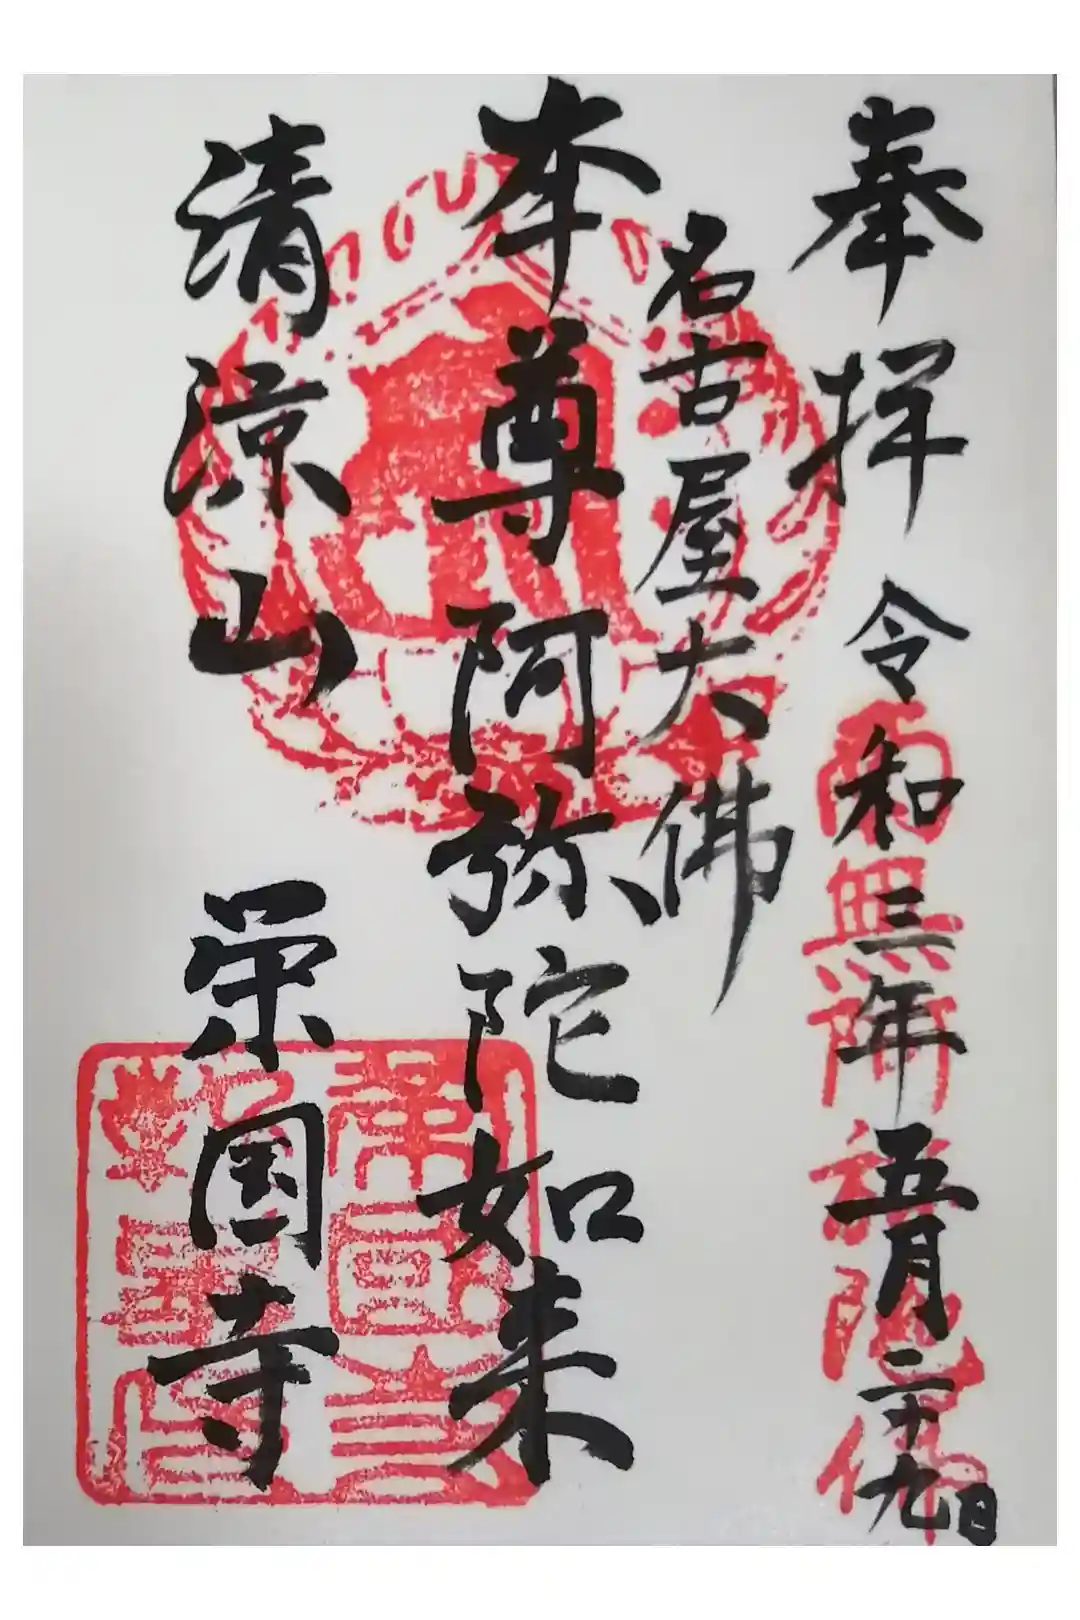 奉拝 令和三年五月二十九日
南無阿弥陀佛
名古屋大佛
本尊阿弥陀如来
清涼山 栄国寺